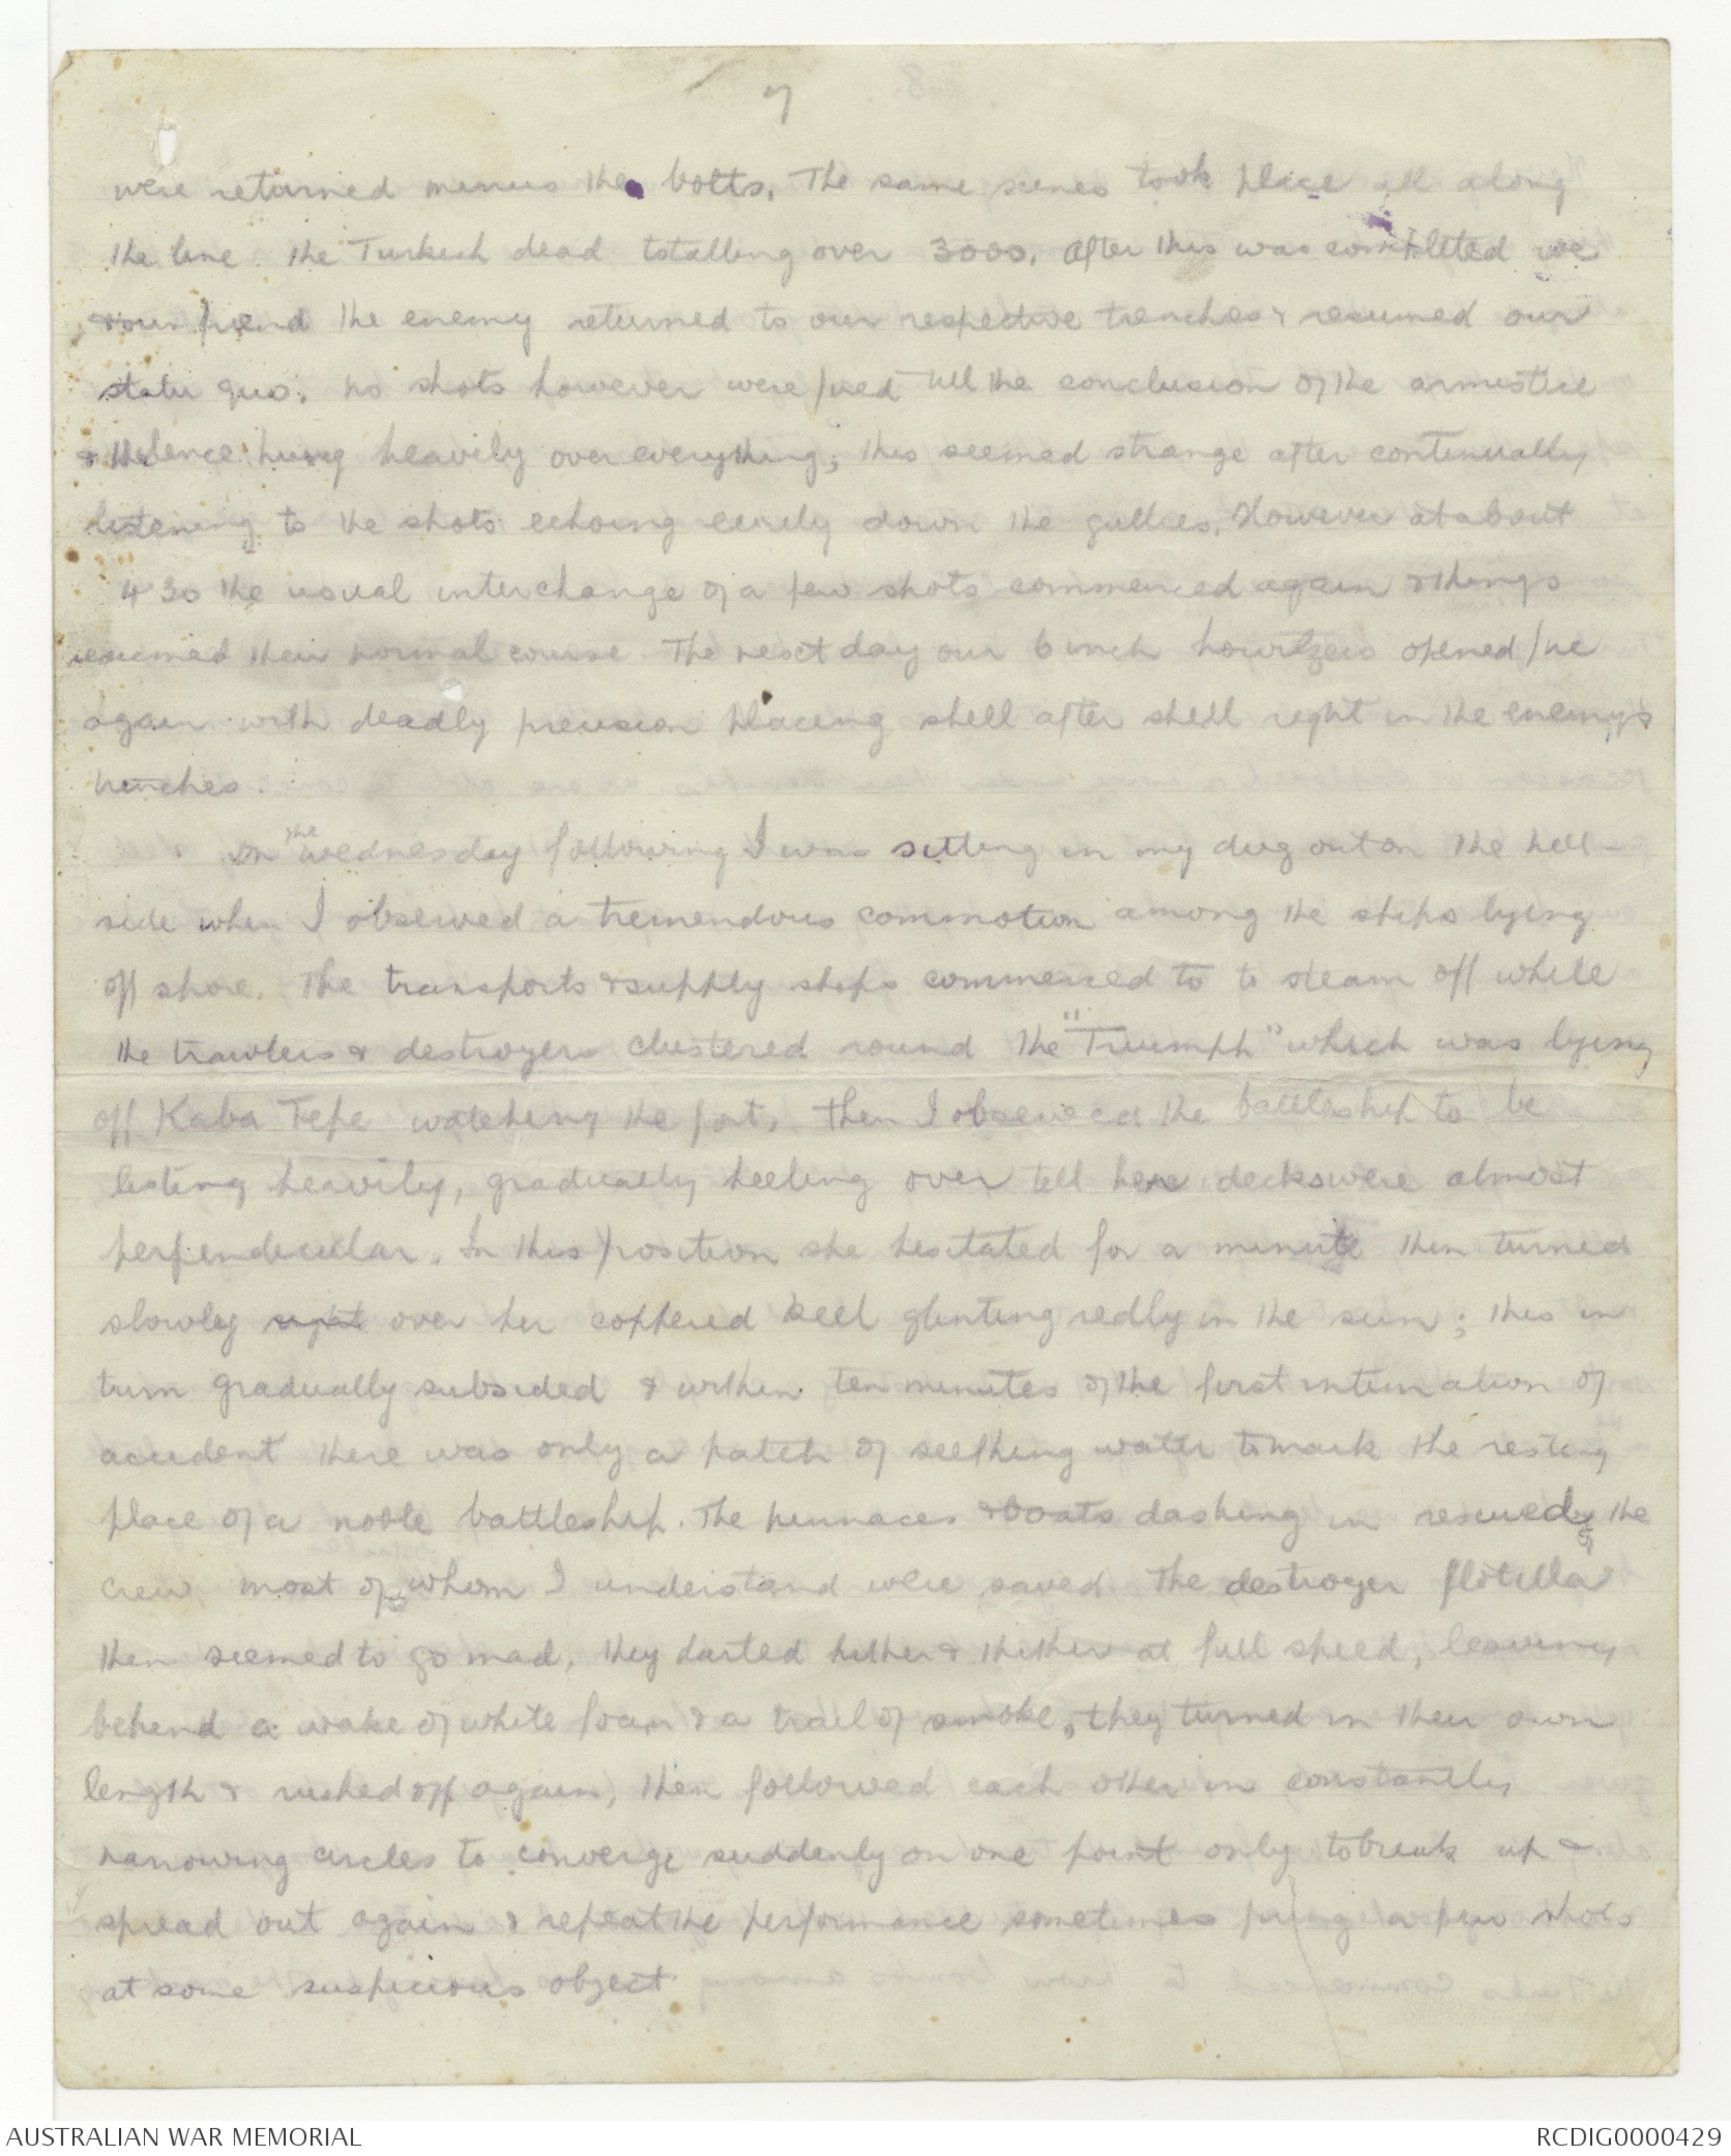 7
were returned minus the bolts. The same scenes took place all along
the line. the Turkish dead totalling over 3000. After this was completed we
& our friend the enemy returned to our respective trenches & resumed our
statu quo. no shots however were fired till the conclusion of the armistice
& silence hung heavily over everything; this seemed strange after continually
listening to the shots echoing eerily down the gullies. However at about
4.30 the usual interchange of a few shots commenced again & things
resumed their normal course. The next day our 6 inch howitzers opened fire
again with deadly precision placing shell after shell right in the enemy's
trenches.
On the wednesday following I was sitting in my dug out on the hill-
side when I observed a tremendous commotion among the ships lying
off shore. The transports & supply ships commenced to to steam off while
the trawlers & destroyers clustered round the "Triumph" which was lying
off Kaba Tepe watching the fort, then I observed the battleship to be
listing heavily, gradually heeling over till here decks were almost
perpendicular. In this position she hesitated for a minute then turned
slowly right over her coppered keel glinting redly in the sun; this in
turn gradually subsided & within ten minutes of the first intimation of
accident there was only a patch of seething water to mark the resting
place of a noble battleship. The pinnaces & boats dashing in rescued the
crew most of whom I understand were saved. The destroyer flotilla
then seemed to go mad, they darted hither & thither at full speed, leaving
behind a wake of white foam & a trail of smoke, they turned in their own
length & rushed off again, then followed each other in constantly
narrowing circles to converge suddenly on one point only to break up &
spread out again & repeat the performance sometimes firing a few shots
at some suspicious object
AUSTRALIAN WAR MEMORIAL
RCDIG0000429